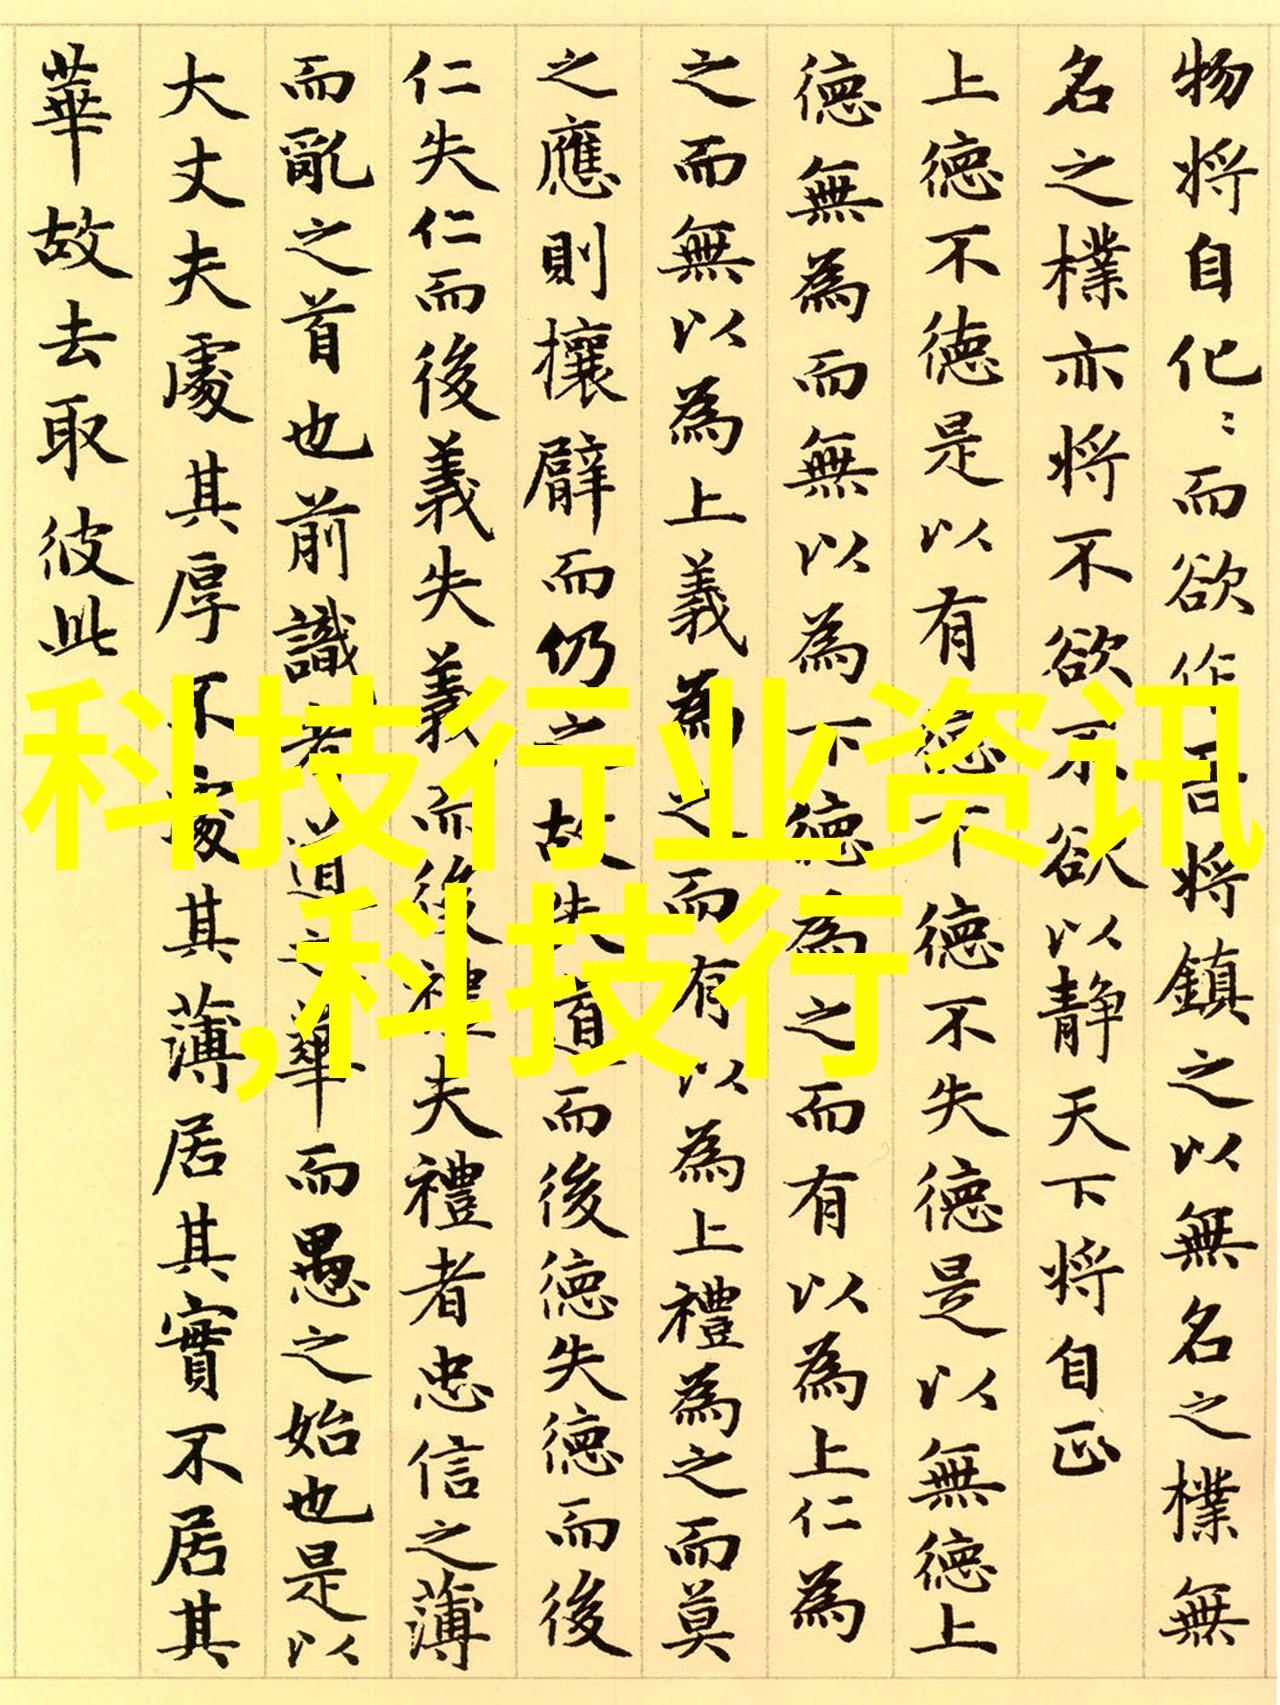 物将自化〻而欲作吾将鎮之以無名之樸無
名之樸亦将不欲不欲以静天下将自正
上德不德是以有德下德不失德是以無德上
德無為而無以為下德為之而有以為上仁為
之而無以為上義為之而有以為上禮為之而莫
之應則攘臂而仍之故失道而後德失德而後
仁失仁而後義失義而後禮夫禮者忠信之薄
而亂之首也前識者道之華而愚之始也是以
大丈夫處其厚不處其薄居其實不居其
華故去取彼此
科技行业资讯
,科技行